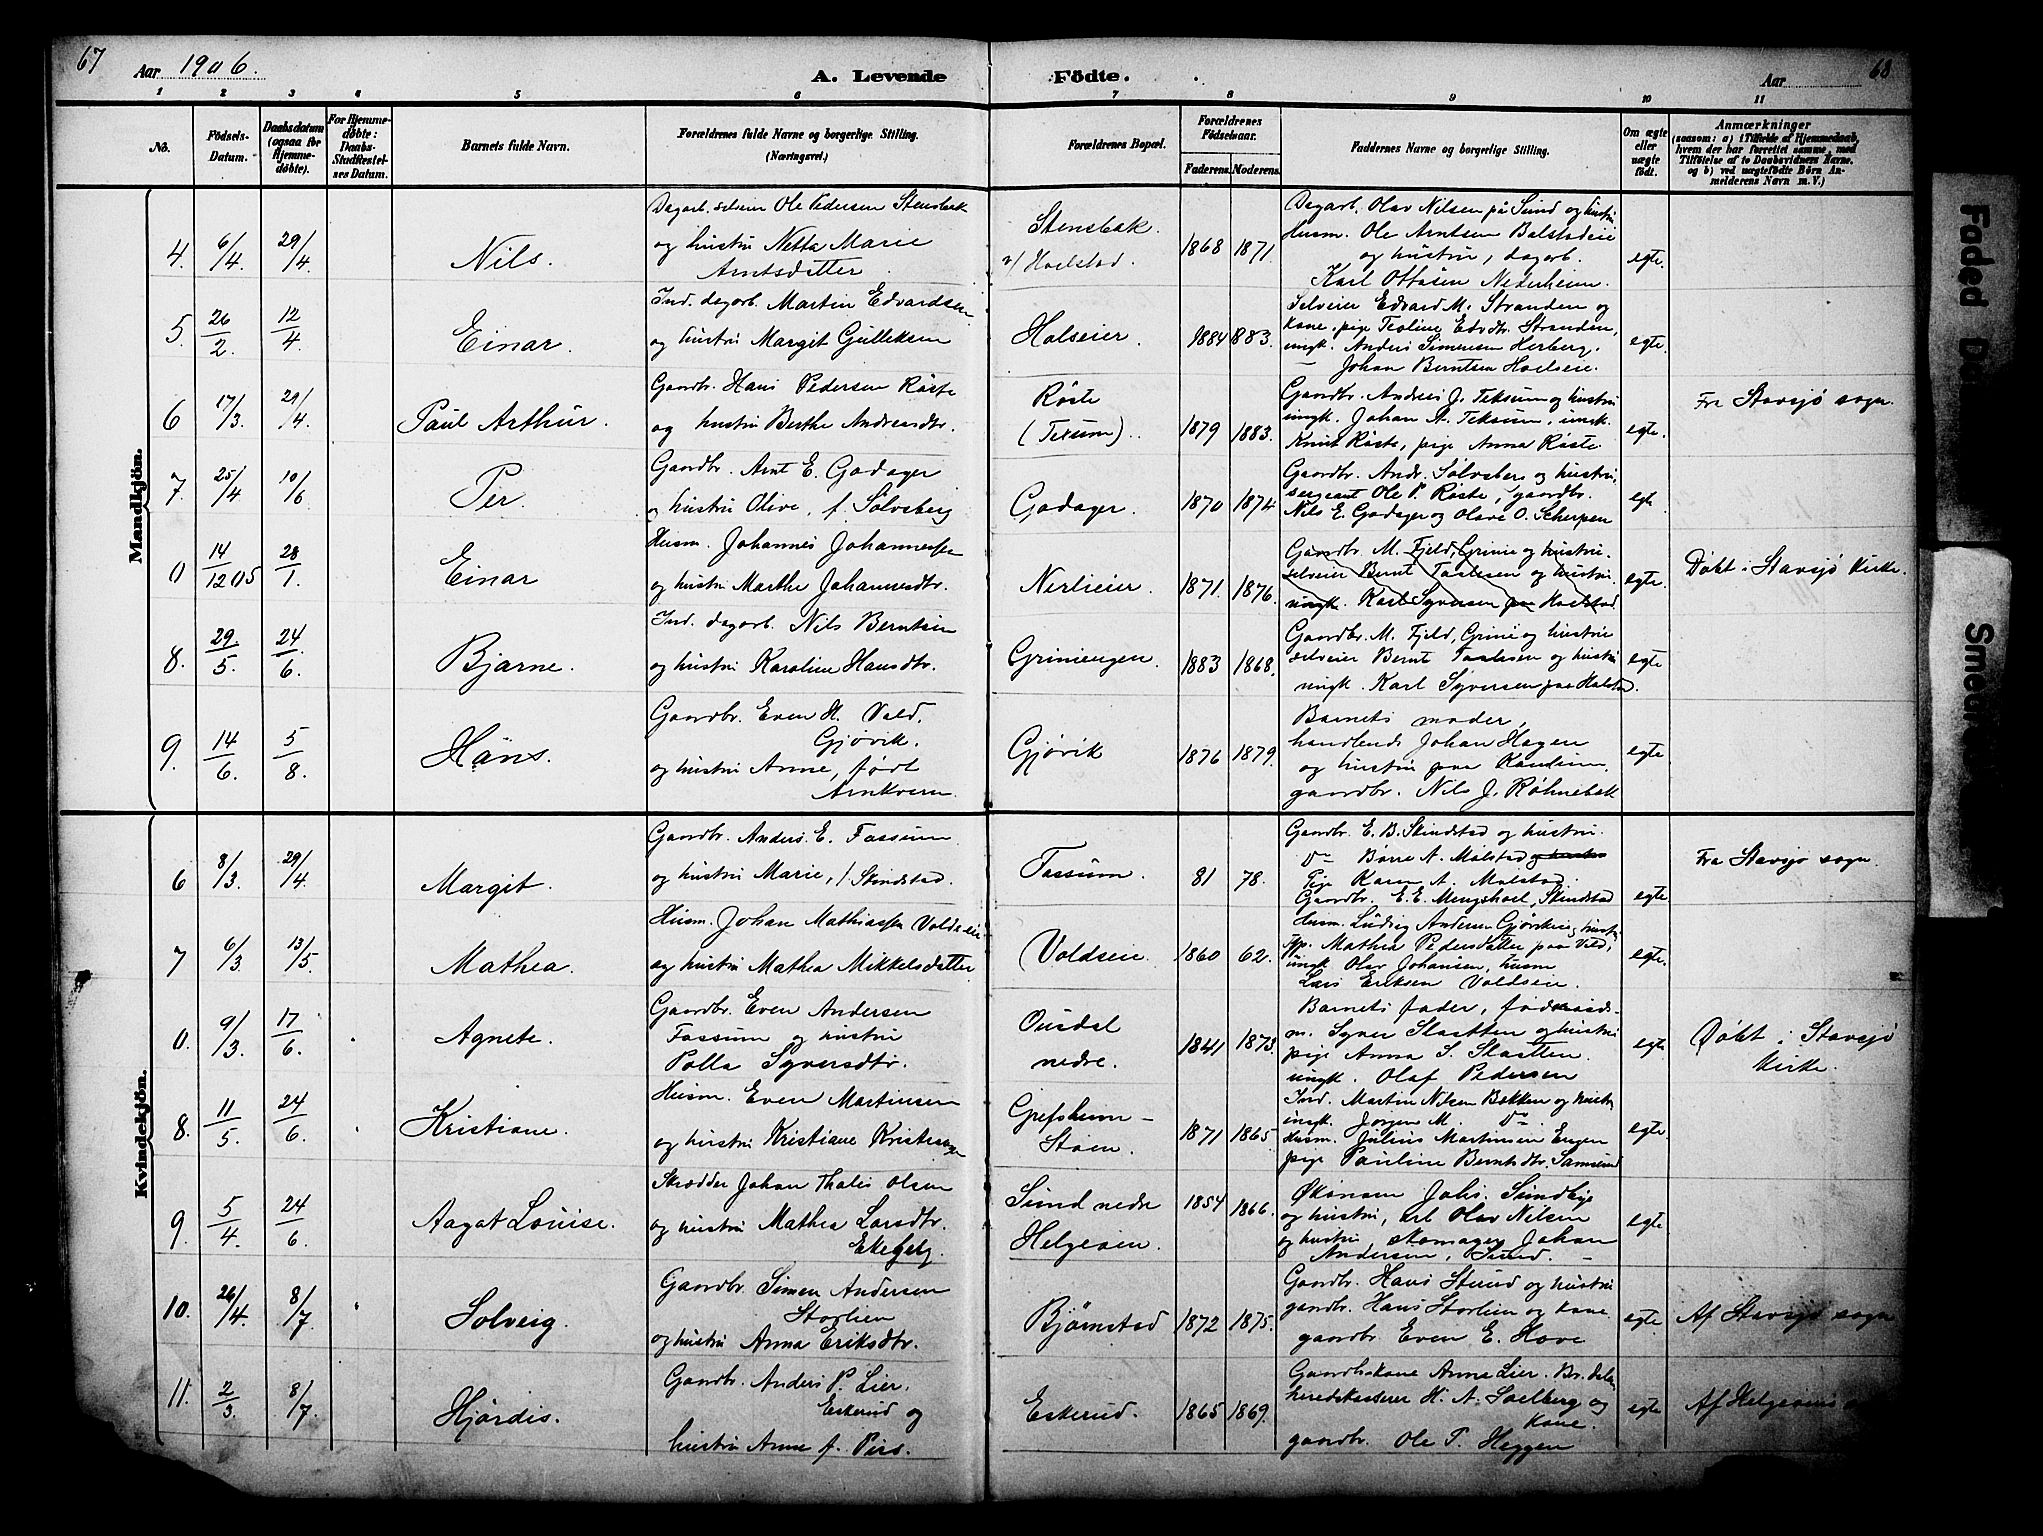 67
Aar 1906.
A. Levende
Födte.
Aar
68
1 2 3 4 5 6 7 8 9 10 11
No.
Födsels-
Datum.
Daabsdatum
(ogsaa for
Hjemme-
døbte).
For Hjemme-
døbte:
Daabs-
Stadfæstel-
ses Datum.
Barnets fulde Navn.
Forældrenes fulde Navne og borgerlige Stilling.
(Næringsvei.)
Forældrenes Bopæl.
Forældrenes
Födselsaar.
Faderens.
Moderens.
Faddernes Navne og borgerlige Stilling.
Om ægte
eller
uægte
født.
Anmærkninger
(saasom: a) i Tilfælde af Hjemmedaab,
hvem der har forrettet samme, med
Tilföielse af to Daabsvidners Navne,
og b) ved uægtefödte Börn An-
melderens Navn m. V.)
Mandkjön.
4. 6/4. 29/4.
Nils.
Dagarb. selveier Ole Pedersen Stensbak
og hustru Netta Marie
Arntsdatter
Stensbak.
Hoelstad.
1868 1871
Dagarb. Olav Nilsen på Sund og hustru
Husm. Ole Arntsen Balstadeie
og hustru, dagarb.
Karl Ottosen Nederheim.
egte.
5. 26/2. 12/4.
Einar.
Ind. dagarb. Martin Edvardsen
og hustru Margit Gulleksen
Holseier.
1884 1883.
Selveier Edvard M. Stranden og
kone, pige Teoline Edvdtr. Stranden,
ungk. Anders Simensen Herberg.
Johan Berntsen Hoelseie.
egte.
6 17/3. 29/4.
Paul Arthur.
Gaardbr. Hans Pedersen Røste
og hustru Berthe Andreasdtr.
Røste
(Texum).
1879 1883.
Gaardbr. Andreas J. Teksum og hustru
ungk. Johan A. Teksum, ungk.
Knut Røste, pige Anna Røste
egte.
Fra Stavsjø sogn.
7. 25/4 10/6
Per
Gaardbr. Arnt E. Godager
og hustru Olive, f. Sølvsberg
Godager.
1870 1874
Gaardbr. Andr. Sølvsberg og hustru,
sergeant Ole P. Røste, gaardbr.
Nils E. Godager og Olave O. Scherpen
egte
0 14/12 05 28/1.
Einar
Husm. Johannes Johannessen
og hustru Marthe Johannesdtr.
Nerlieier.
1871. 1876.
Gaardbr. M. Fjeld, Grinie og hustru.
selveier Bernt Taalesen og hustru.
ungk. Karl Syversen paa Hoelstad.
egte.
Døbt i Stavsjø Kirke.
8. 29/5. 24/6.
Bjarne.
Ind. dagarb. Nils Berntsen
og hustru Karoline Hansdtr.
Griniengen.
1883 1868.
Gaardbr. M. Fjeld, Grini og hustru
selveier Bernt Taalesen og hustru
ungk. Karl Syversen paa Holstad.
egte
9. 14/6. 5/8.
Hans.
Gaardbr. Even H. Vold,
Gjøvik.
og hustru Anne, født
Arnkvern.
Gjøvik
1876 1879.
Barnets moder,
handlende Johan Hagen
og hustru paa
gaardbr. Nils J. Røhnebæk
egte
Kvindekjön.
6 8/3. 29/4.
Margit.
Gaardbr. Anders E. Fossum
og hustru Marie, f. Skindstad.
Fossum.
81 78.
Gaardbr. E. B. Skindstad og hustru.
Do Børre A. Molstad og hustru
Pige Karen A. Molstad.
Gaardbr. E. E. Mengshoel, Skindstad
egte
Fra Stavsjø sogn.
7 6/3. 13/5.
Mathea.
Husm. Johan Mathiassen Voldseie
og hustru Mathea Mikkelsdatter
Voldseie.
1860 62.
Husm. Ludvig Andersen Gjøvikeie og hustru
Mathea Pedersdatter paa Vold,
ungk. Olav Johansen, husm
Lars Eriksen Voldseie.
egte.
0. 9/3. 17/6.
Agnete.
Gaardbr. Even Andersen
Fossum og hustru
Polla Syversdtr.
Ousdal
nedre.
1841 1873.
Barnets fader, føderaads-
m. Syver Slaatten og hustru
pige Anna S. Slaatten.
ungk. Olaf Pedersen
egte
Døbt i Stavsjø
Kirke.
8. 11/5. 24/6.
Kristiane.
Husm. Even Martinsen
og hustru Kristiane Kristiansen
Grefsheim-
Støen.
1871 1865
Ind. Martin Nilsen Bakken og hustru
ungk. Jørgen M. Do.
Husm. Julius Martinsen Engen
pige Pauline Berntsdtr. Samsund
egte.
9. 5/4. 24/6.
Aagot Louise.
Skrædder Johan Thales Olsen
og hustru Mathea Larsdtr.
Ekeberg.
Sund nedre
Helgeøen.
1854 1866.
Økonom Johs. Sundbye
og hustru, arb. Olav Nilsen
og hustru, skomager Johan
Andersen, Sund.
egte
10. 26/4. 8/7.
Solveig.
Gaardbr. Simen Andersen
Storlien
og hustru Anna Eriksdtr.
Bjørnstad
1872 1875.
Gaardbr. Hans Stund og hustru
gaardbr. Hans Storlien og kone
gaardbr. Even E. Hove
egte
Af Stavsjø sogn
11. 2/3. 8/7.
Hjørdis.
Gaardbr. Anders P. Lier.
Eskerud og
hustru Anne f. Piro.
Eskerud.
1865 1869.
Gaardbrskone Anna Lier. Br.
heredskasserer H. A. Soelberg og
kone.
gaardbr. Ole T. Heggen
egte
Af Helgøens
Faded D
Smeare